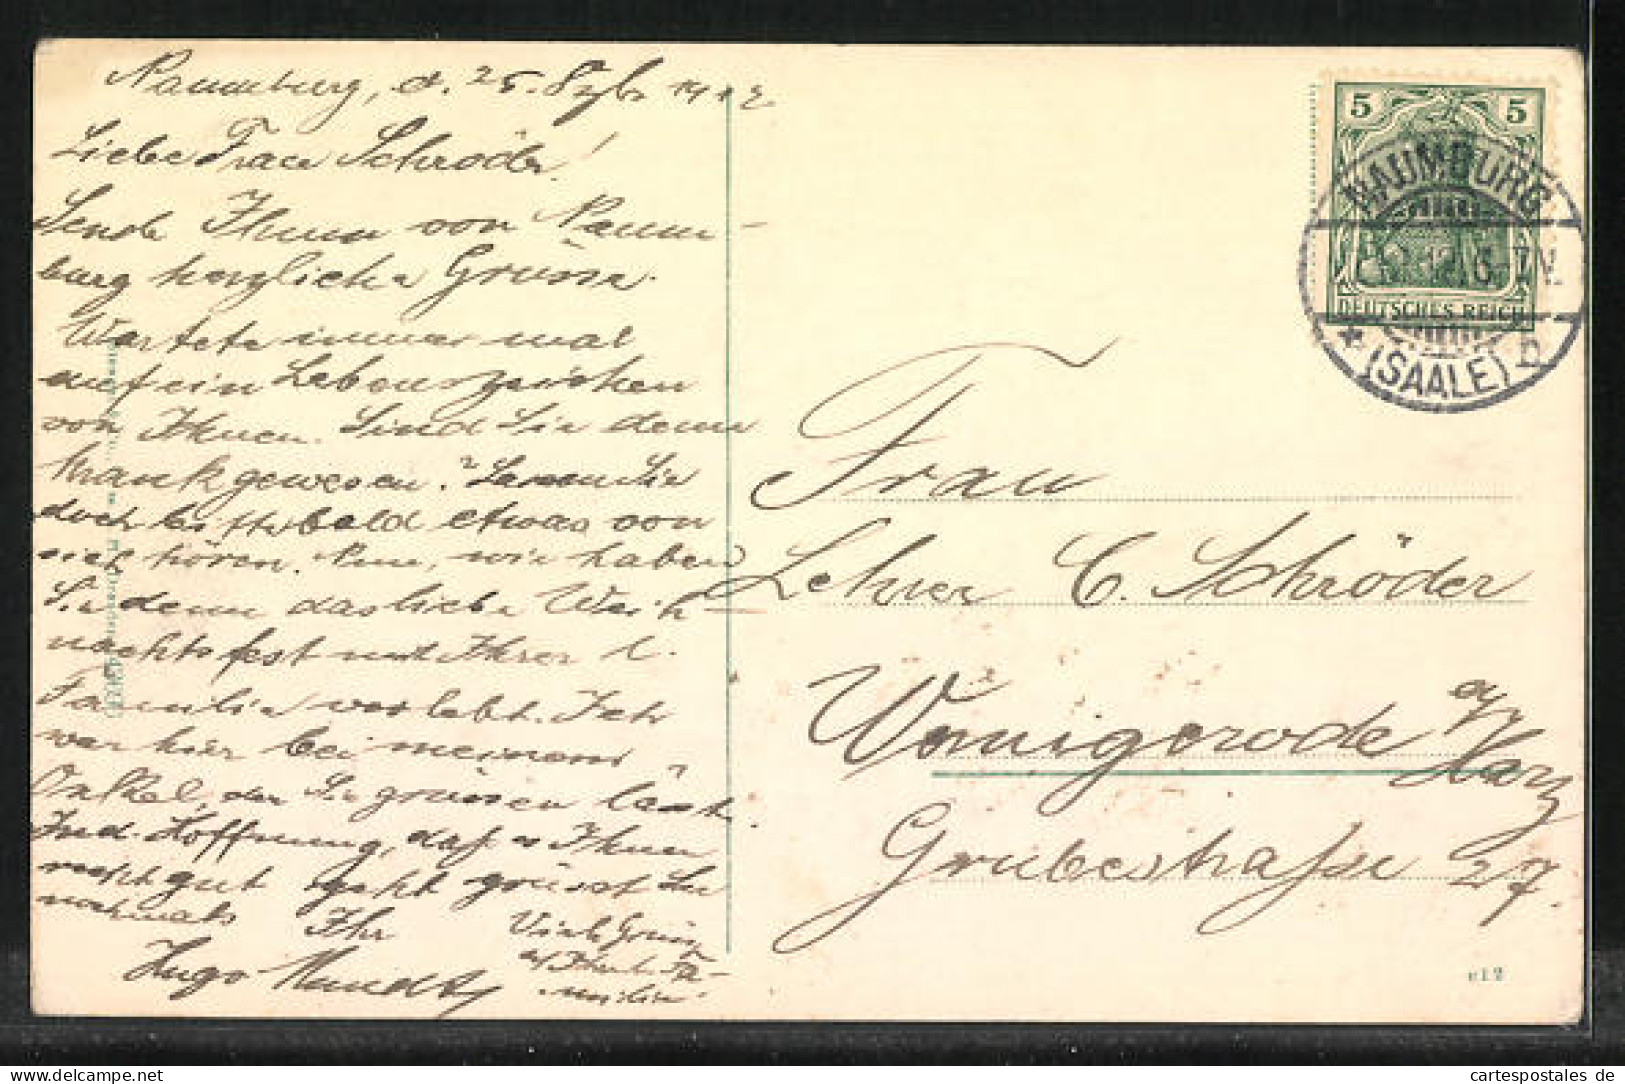 Naumburg, d. 25. Dzbr 1912
Liebe Frau Schröder!
Sende Ihnen von Naum-
burg herzliche Grüsse.
Wartete immer mal
auf ein Lebenszeichen
von Ihnen. Sind Sie denn
krank gewesen? Lassen Sie
doch bitte bald etwas von
sich hören. Nun, wie haben
Sie denn das liebe Weih-
nachtsfest mit Ihrer l.
Familie verlebt. Ich
war hier bei meinem
Onkel, der Sie grüssen lässt.
Ind. Hoffnung, daß es Ihnen
recht gut geht grüsst Sie
nochmals Ihr
Hugo
Viele Grüße
a/ Ihre l. Fa-
milie.
5 5
DEUTSCHES REICH
NAUMBURG
12.6-7N.
* (SAALE) b
Frau
Lehrer C. Schröder
Wernigerode a/Harz
Grubestraße 27.
e12
cartespostales de